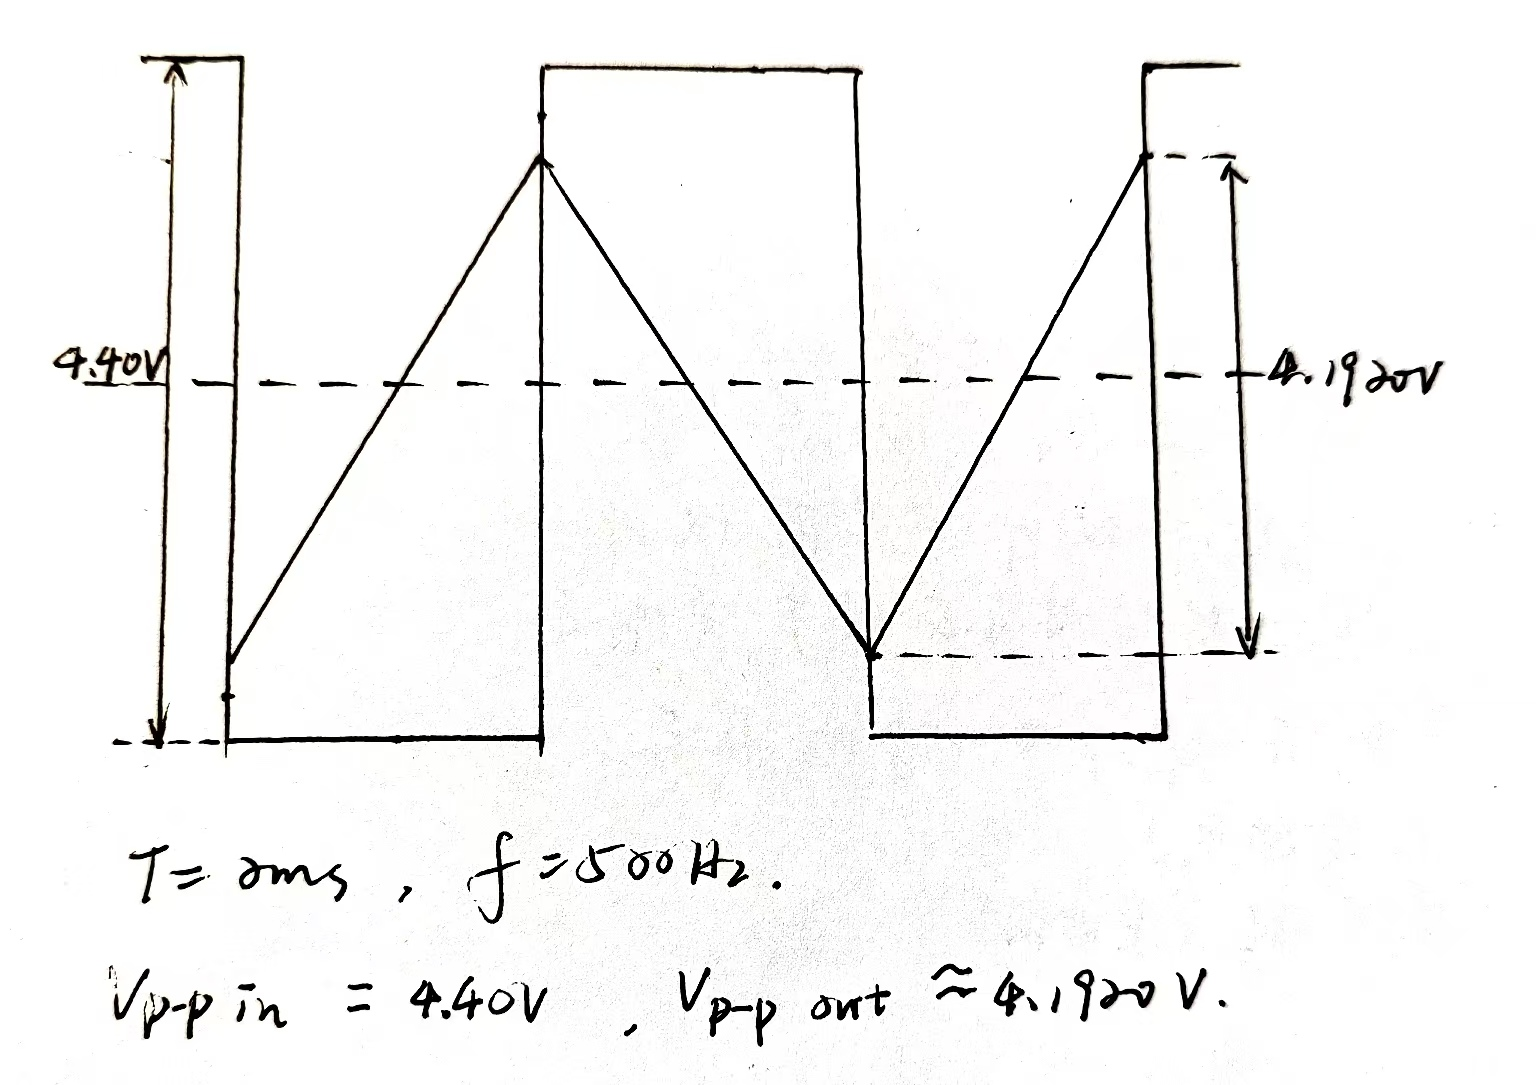 4.40V
4.1920V
T= 2ms , f=500Hz.
Vp-p in = 4.40V , Vp-p out ≈ 4.1920V.